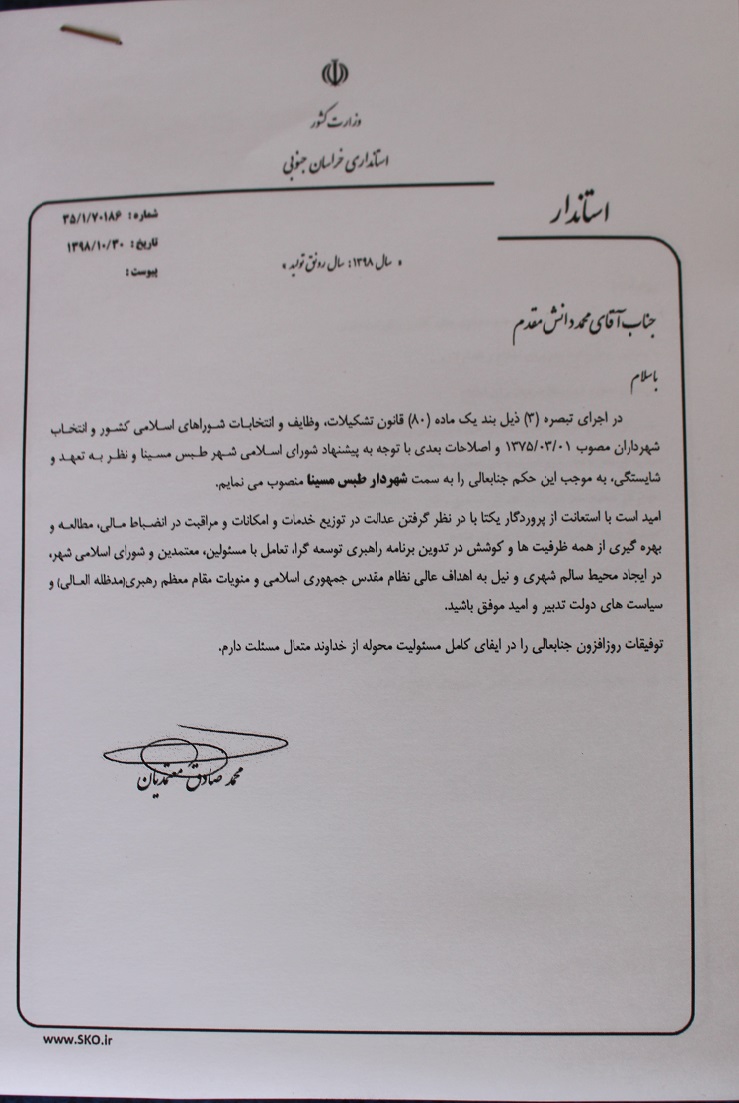 وزارت کشور
استانداری خراسان جنوبی
استاندار
شماره: ۳۵/۱/۷۰۱۸۶
تاریخ: ۱۳۹۸/۱۰/۳۰
پیوست:
« سال ۱۳۹۸: سال رونق تولید »
جناب آقای محمد دانش مقدم
باسلام
در اجرای تبصره (۳) ذیل بند یک ماده (۸۰) قانون تشکیلات، وظایف و انتخابات شوراهای اسلامی کشور و انتخاب
شهرداران مصوب ۱۳۷۵/۰۳/۰۱ و اصلاحات بعدی با توجه به پیشنهاد شورای اسلامی شهر طبس مسینا و نظر به تعهد و
شایستگی، به موجب این حکم جنابعالی را به سمت شهردار طبس مسینا منصوب می نمایم.
امید است با استعانت از پروردگار یکتا با در نظر گرفتن عدالت در توزیع خدمات و امکانات و مراقبت در انضباط مالی، مطالعه و
بهره گیری از همه ظرفیت ها و کوشش در تدوین برنامه راهبری توسعه گرا، تعامل با مسئولین، معتمدین و شورای اسلامی شهر،
در ایجاد محیط سالم شهری و نیل به اهداف عالی نظام مقدس جمهوری اسلامی و منویات مقام معظم رهبری(مدظله العالی) و
سیاست های دولت تدبیر و امید موفق باشید.
توفیقات روزافزون جنابعالی را در ایفای کامل مسئولیت محوله از خداوند متعال مسئلت دارم.
محمد صادق معتمدیان
www.SKO.ir